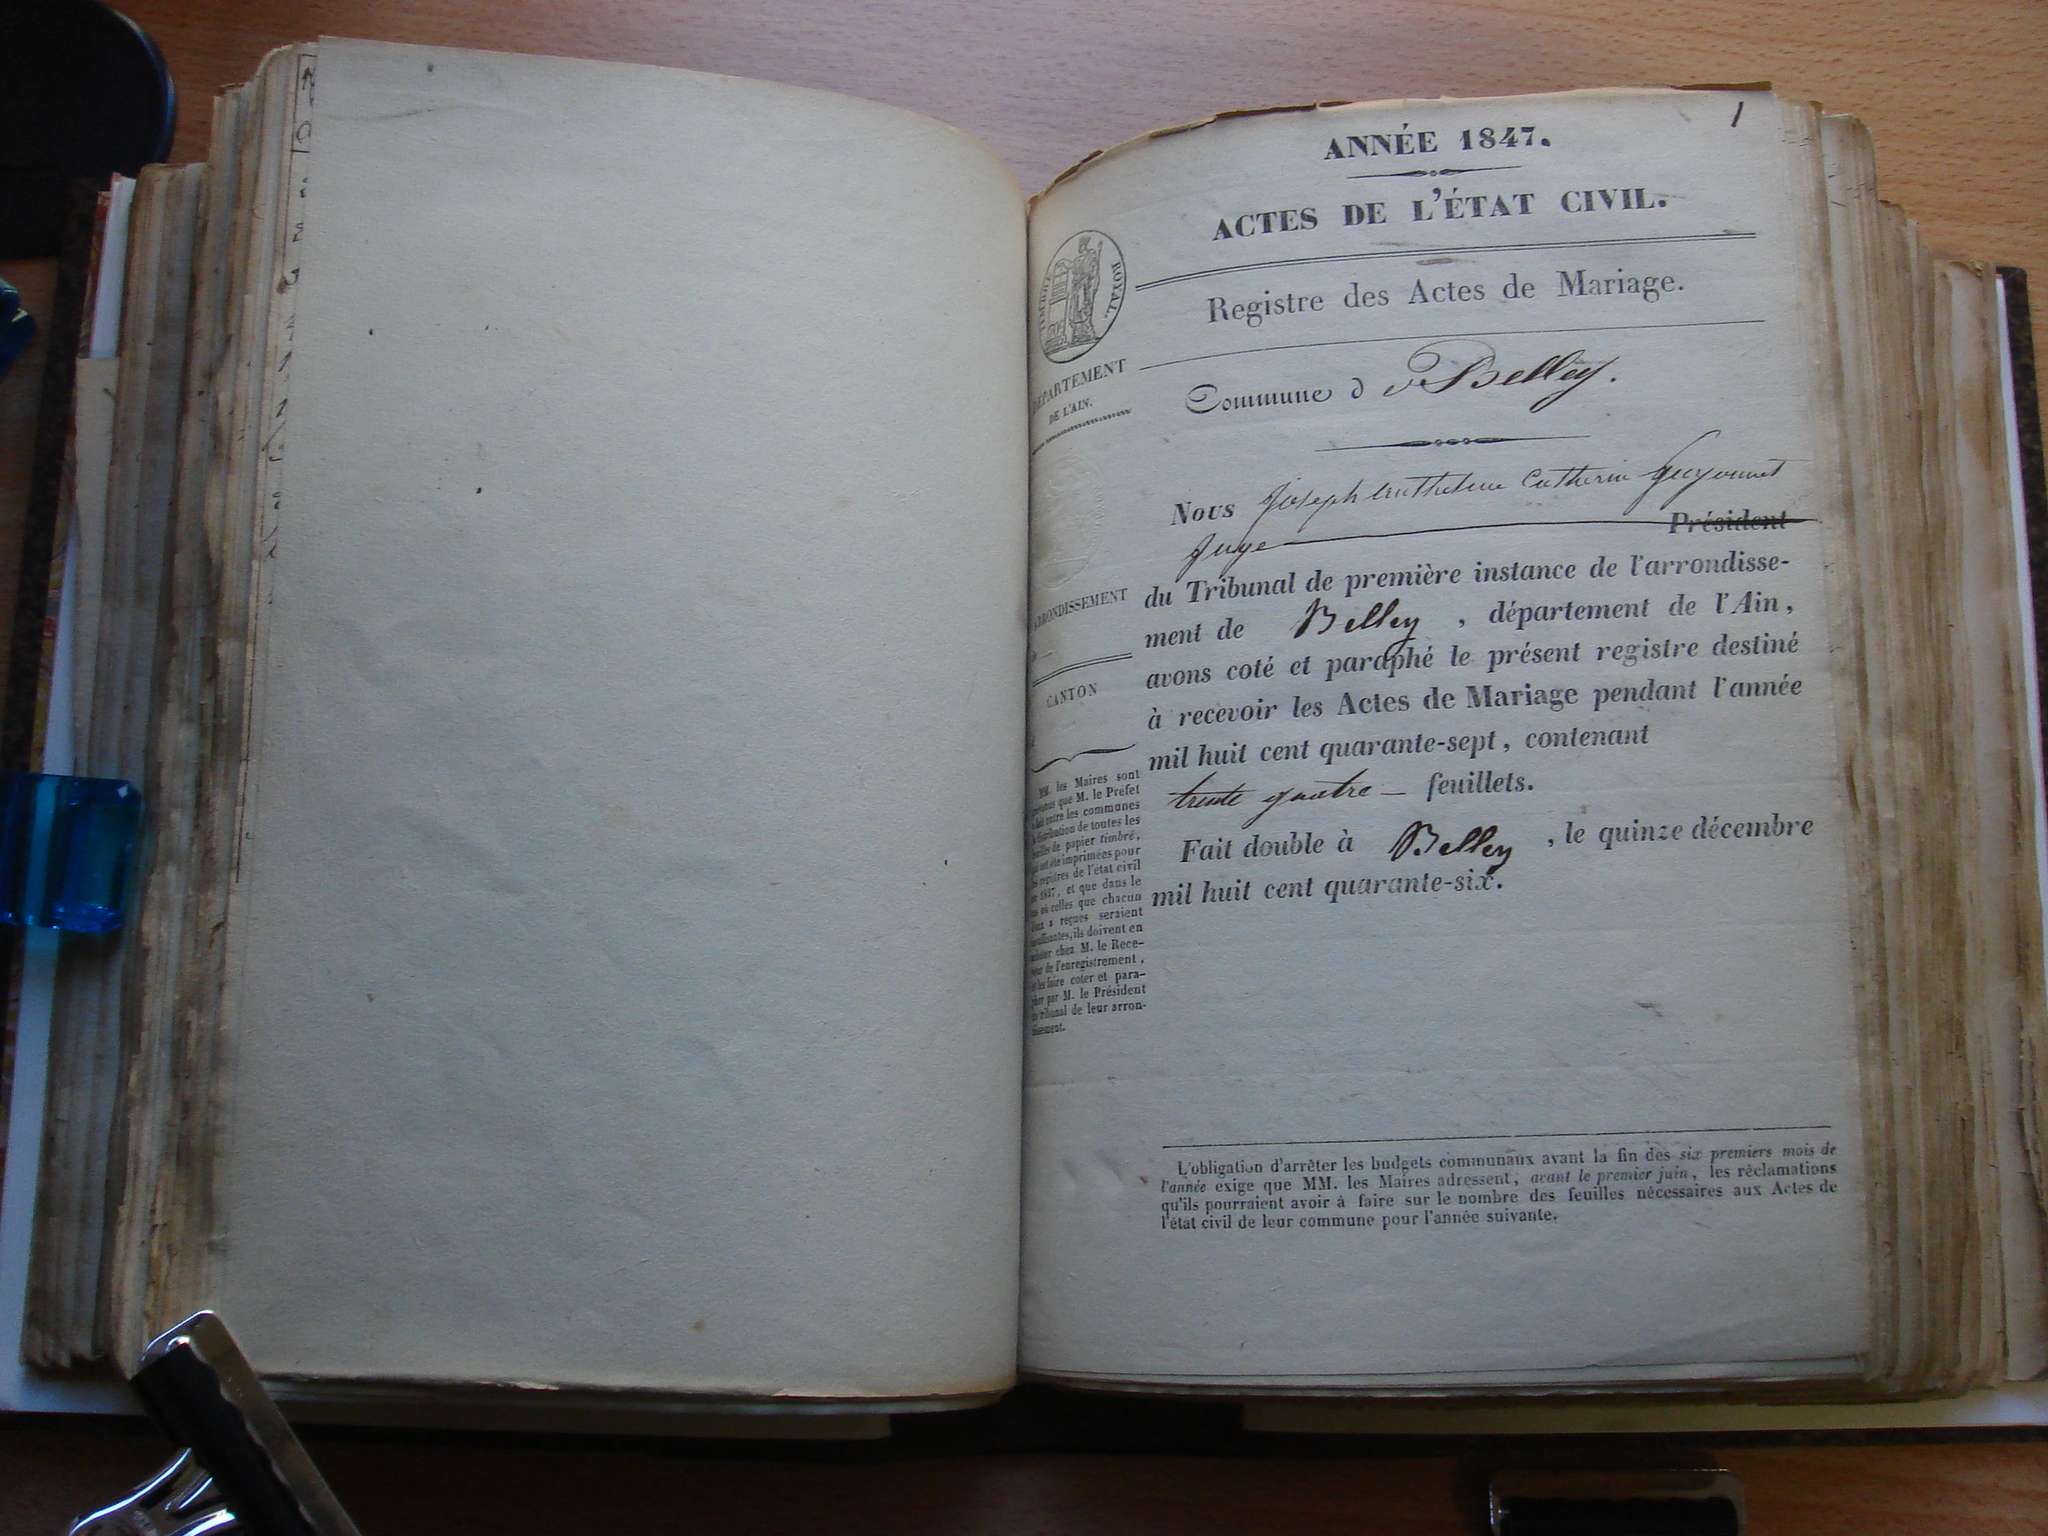 1
ANNÉE 1847.
ACTES DE L'ÉTAT CIVIL.
Registre des Actes de Mariage.
ROYAL.
DÉPARTEMENT
DE L'AIN.
Commune de Belley.
Nous Joseph Anthelme Catherin Guyonnet
Juge Président
du Tribunal de première instance de l'arrondisse-
ment de Belley, département de l'Ain,
avons coté et paraphé le présent registre destiné
à recevoir les Actes de Mariage pendant l'année
mil huit cent quarante-sept, contenant
trente quatre — feuillets.
Fait double à Belley, le quinze décembre
mil huit cent quarante-six.
ARRONDISSEMENT
CANTON
MM. les Maires sont
que M. le Préfet
entre les communes
distribution de toutes les
de papier timbré,
ont été imprimées pour
registres de l'état civil
1847, et que dans le
où celles que chacun
a reçues seraient
ils doivent en
chez M. le Rece-
de l'enregistrement,
les faire coter et para-
par M. le Président
tribunal de leur arron-
dissement.
L'obligation d'arrêter les budgets communaux avant la fin des six premiers mois de
l'année exige que MM. les Maires adressent, avant le premier juin, les réclamations
qu'ils pourraient avoir à faire sur le nombre des feuilles nécessaires aux Actes de
l'état civil de leur commune pour l'année suivante.